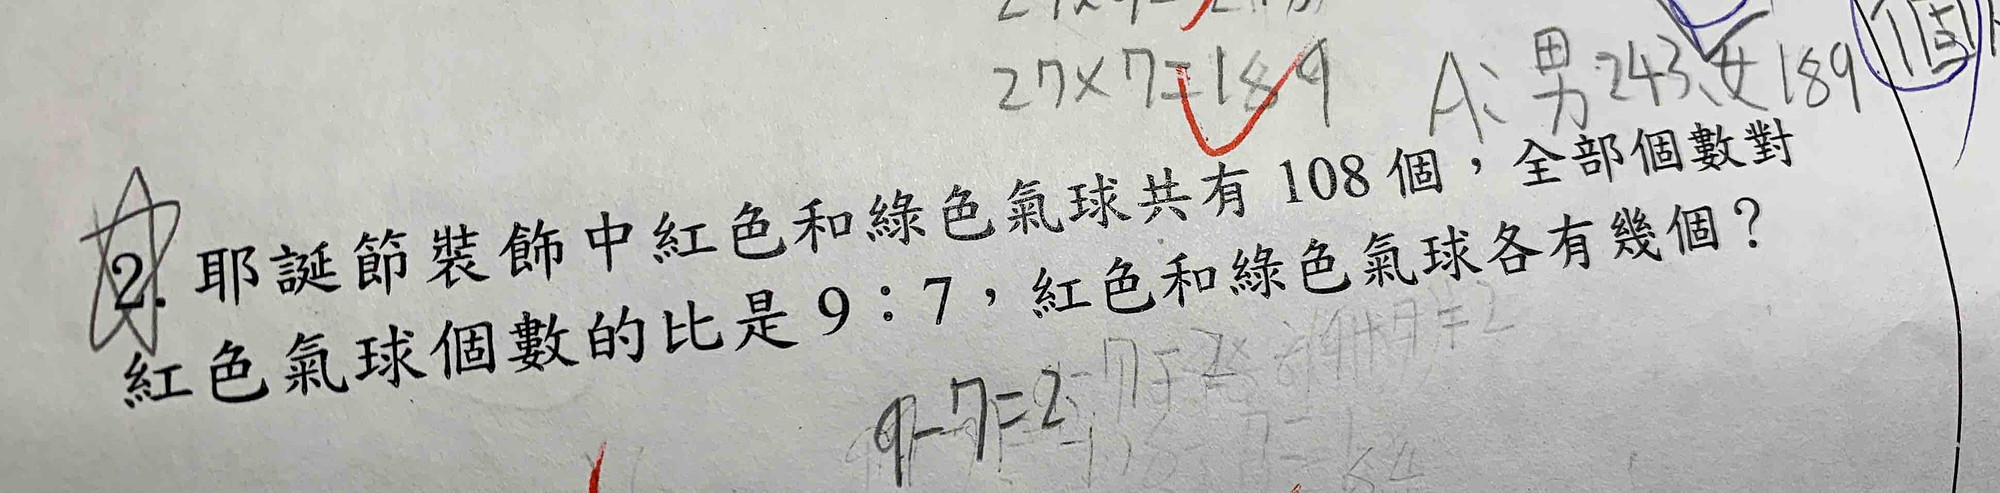 27×7=189
A:男243、女189
2. 耶誕節裝飾中紅色和綠色氣球共有 108 個，全部個數對
紅色氣球個數的比是 9：7，紅色和綠色氣球各有幾個？
9-7=2